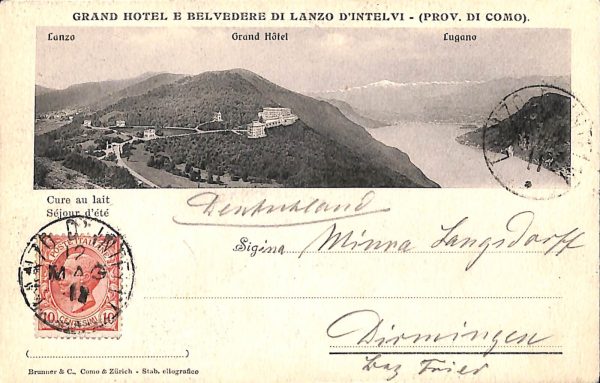 GRAND HOTEL E BELVEDERE DI LANZO D'INTELVI - (PROV. DI COMO).
Lanzo Grand Hôtel Lugano
Cure au lait
Séjour d'été
Deutschland
Sigina Minna Langsdorff
MAG
POSTE ITALIANE
10 CENTESIMI 10
Dirmingen
Bez Trier
Brunner & C., Como & Zürich - Stab. eliografico